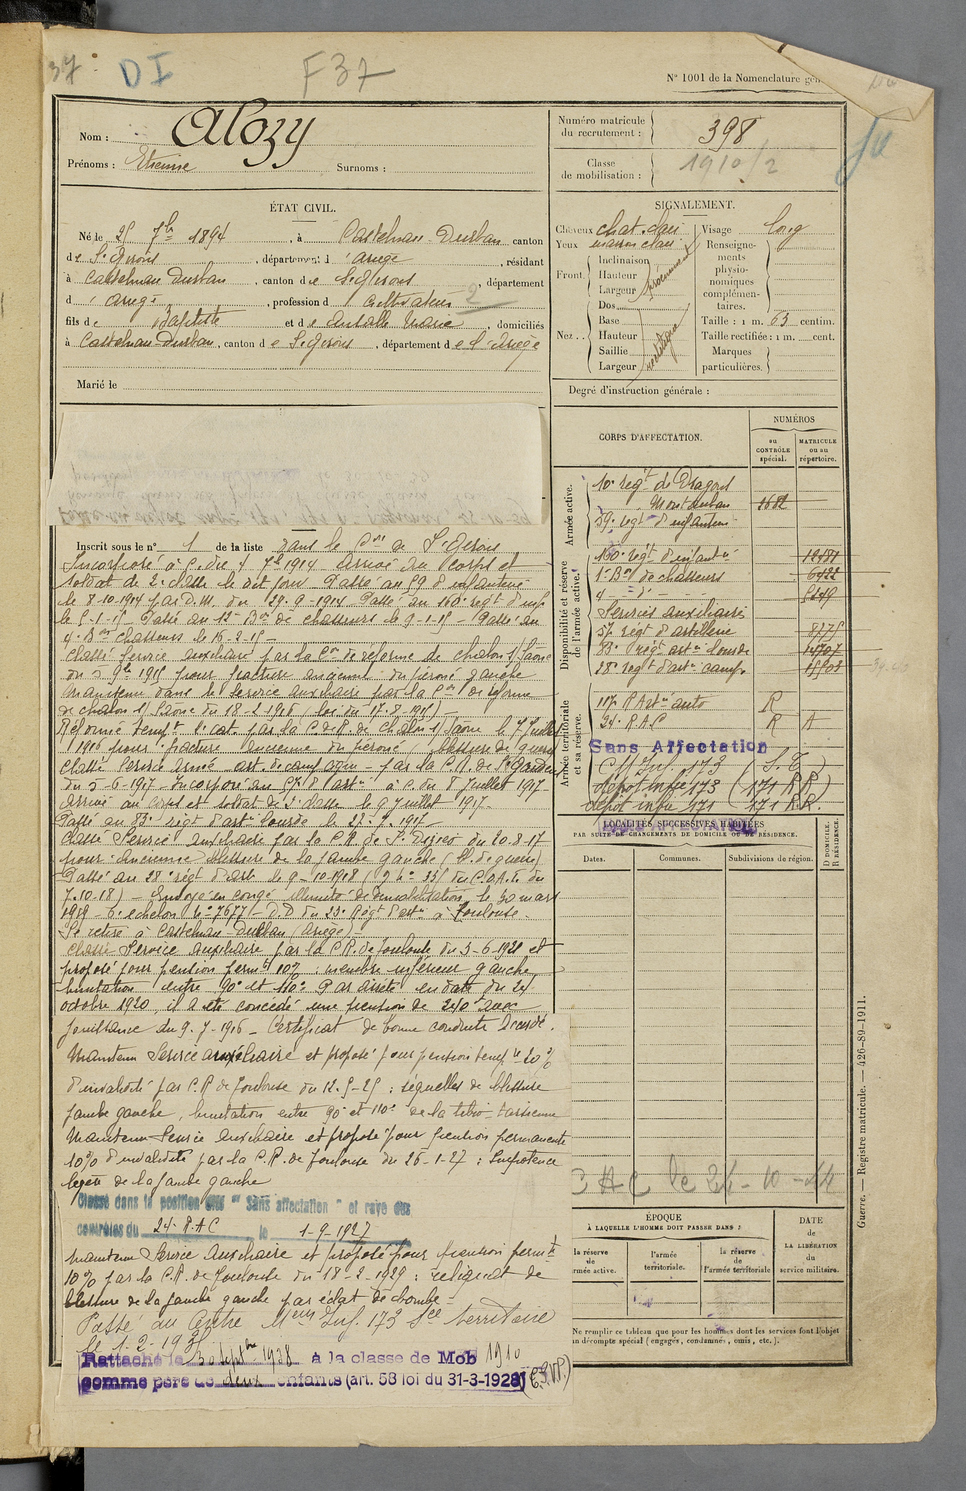 37
DI
F37
N° 1001 de la Nomenclature gén
Nom : Alozy
Prénoms : Etienne Surnoms :
Numéro matricule du recrutement : 398
Classe de mobilisation : 1910/2
ÉTAT CIVIL.
Né le 25 7bre 1894, à Castelnau-Durban canton
de St Girons, département d l'ariège, résidant
à Castelnau Durban, canton de St Girons, département
d l'ariège, profession d cultivateur 2
fils de Baptiste et de Marie, domiciliés
à Castelnau-Durban, canton de St Girons, département de l'Ariège
Marié le
SIGNALEMENT.
Cheveux chat. clair
Yeux marron clair
Front.
Inclinaison
Hauteur
Largeur
Nez . .
Dos
Base
Hauteur
Saillie
Largeur
rectiligne
Visage long
Renseigne-
ments
physio-
nomiques
complémen-
taires.
Taille : 1 m. 63 centim.
Taille rectifiée : 1 m. cent.
Marques
particulières.
Degré d'instruction générale :
CORPS D'AFFECTATION.
NUMÉROS
au CONTRÔLE spécial.
MATRICULE ou au répertoire.
Armée active.
10e régt de Dragons
Montauban 3682
59e régt d'infanterie
Disponibilité et réserve de l'armée active.
160e régt d'infantie
1er Bon de chasseurs
4 - d° -
Services auxiliaires
57 régt d'artillerie 8775
83e régt artie lourde 14707
28e régt d'artie campe 15508
Armée territoriale et sa réserve.
117 R Artie auto R
24e R.A.C R A
Sans Affectation
CM Inf. 173 (S.T)
dépôt infie 173 (171 RR)
dépôt infie 171 171 R.R.
SANS AFFECTATION
LOCALITÉS SUCCESSIVES HABITÉES
PAR SUITE DE CHANGEMENTS DE DOMICILE OU DE RÉSIDENCE.
Dates.
Communes.
Subdivisions de région.
D DOMICILE. R RÉSIDENCE.
Inscrit sous le n° 1 de la liste dans le Con de St Girons
Incorporé à c. du 4 7bre 1914 Arrivé au corps et
soldat de 2e classe le dit jour Passé au 59 d'infanterie
le 8-10-1914 par D.M. du 29-9-1914 Passé au 160e régt d'inf
le 5-1-15 - Passé au 1er Bon de chasseurs le 9-1-15 - Passé au
4e Bon chasseurs le 16-2-15 -
Classé Service auxiliaire par la Con de réforme de Chalon s/Saône
du 5 9bre 1915 pour fracture ancienne du péroné gauche
Maintenu dans le service auxiliaire par la Con de réforme
de Chalon s/Saône du 18-2-1916 (loi du 17-8-1915) -
Réformé tempt 1e cat. par la C. de R. de Chalon s/Saône le 7 Juillet
1916 pour fracture ancienne du péroné (blessure de guerre
Classé Service armé art. de campagne - par la C.R. de St Gaudens
du 5-6-1917 - Incorporé au 57e R d'artie à c. du 8 Juillet 1917 -
Arrivé au corps et soldat de 2e classe le 9 Juillet 1917 -
Passé au 83e régt d'artie lourde le
Classé Service auxiliaire par la C.R. de du 20-8-17
pour ancienne blessure de la jambe gauche (bl. de guerre)
Passé au 28e régt d'artie le 9-10-1918 du
7-10-18) - Envoyé en congé illimité de démobilisation le 30 mars
1919 - 6e échelon N° 7677 - D.D du 23e Régt d'artie à Toulouse.
Se retire à Castelnau-Durban (Ariège)
Classé Service auxiliaire par la C.R. de Toulouse du 3-6-1920 et
proposé pour pension permte 10% : membre inférieur gauche,
limitation entre 90° et 110°. Par arrêté en date du 24
octobre 1920, il a été concédé une pension de 240f avec
jouissance du 9-7-1916 - Certificat de bonne conduite Accordé.
Maintenu Service auxiliaire et proposé pour pension tempre 20%
d'invalidité par C.R de Toulouse du 12-5-25 : séquelles de blessure
jambe gauche, limitation entre 90° et 110° de la tibio-tarsienne
Maintenu Service auxiliaire et proposé pour pension permanente
10% d'invalidité par la C.R. de Toulouse du 26-1-27 : Impotence
légère de la jambe gauche
Classé dans la position dite "Sans affectation" et rayé des
contrôles du 24e R.A.C le 1-9-1927
Maintenu Service Auxiliaire et proposé pour pension permte
10% par la C.R. de Toulouse du 18-2-1929 : reliquat de
blessure de la jambe gauche par éclat de bombe -
Passé au Centre Meur Inf. 173 Sce territoire
Rattaché le 30 Septbre 1938 à la classe de Mob 1910
comme père de deux enfants (art. 58 loi du 31-3-1928)
CAC le 24-10-44
ÉPOQUE
À LAQUELLE L'HOMME DOIT PASSER DANS :
la réserve de armée active.
l'armée territoriale.
la réserve de l'armée territoriale
DATE de LA LIBÉRATION du service militaire.
Ne remplir ce tableau que pour les hommes dont les services font l'objet
un décompte spécial (engagés, condamnés, omis, etc.).
Guerre. — Registre matricule. — 426-89-1911.